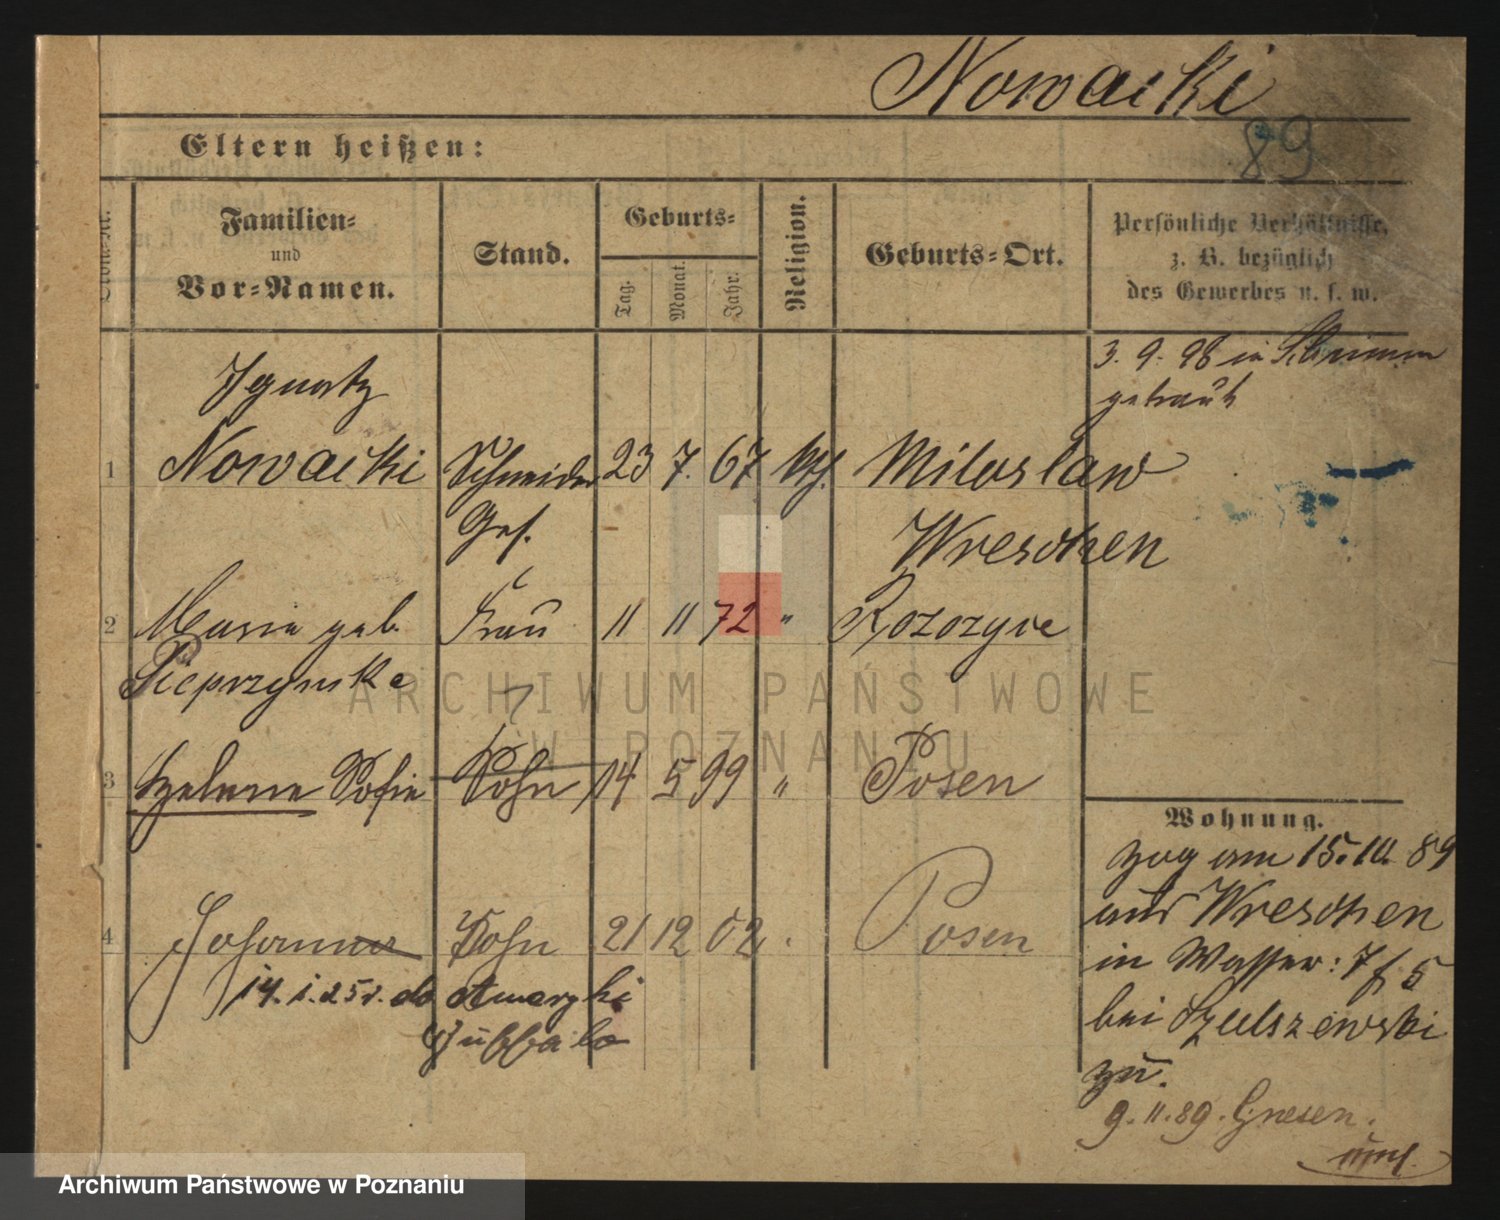 Nowacki
89
Eltern heißen:
Familien-
und
Vor-Namen.
Stand.
Geburts-
Tag.
Monat.
Jahr.
Religion.
Geburts-Ort.
Persönliche Verhältnisse,
z. B. bezüglich
des Gewerbes u. s. w.
3. 9. 98 in Schrimm
getraut
Ignatz
1 Nowacki Schneider 23 7. 67 kth. Miloslaw
Ges. Wreschen
2 Marie geb. Frau 11 11 72 "
Pieprzynska
3 Helene Sofie 14 5 99 " Posen
4 Johanna 21 12 02. Posen
14. 1. 25 r. do Ameryki
Wohnung.
zog am 15.10. 89
aus Wreschen
in Wasser: 7 f 5
bei Szulszewski
zu.
9. 11. 89. Gnesen.
ARCHIWUM PAŃSTWOWE
W POZNANIU
Archiwum Państwowe w Poznaniu